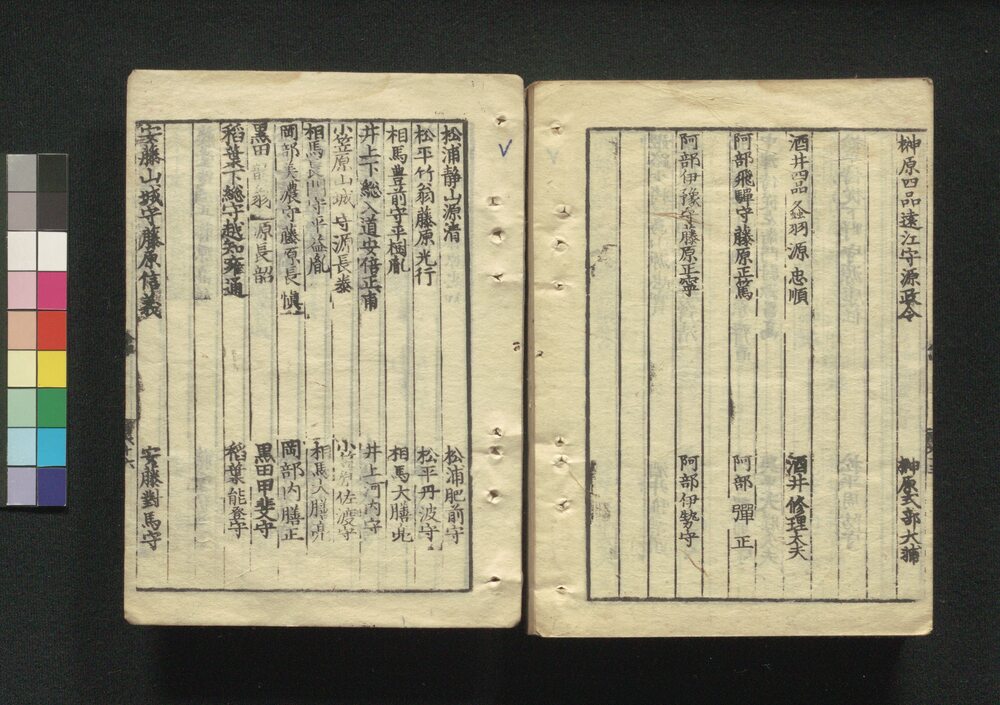 榊原四品遠江守源政令 榊原式部大輔
酒井四品 源忠順 酒井修理大夫
阿部飛驒守藤原正篤 阿部彈正
阿部伊豫守藤原正寧 阿部伊勢守
松浦静山源清 松浦肥前守
松平竹翁藤原光行 松平丹波守
相馬豊前守平樹胤 相馬大膳亮
井上下総入道安倍正甫 井上河内守
小笠原山城守源長泰 小笠原佐渡守
相馬長門守平益胤 相馬大膳亮
岡部美濃守藤原長慎 岡部内膳正
黒田 翁源長韶 黒田甲斐守
稻葉下総守越知雍通 稻葉能登守
安藤山城守藤原信義 安藤對馬守